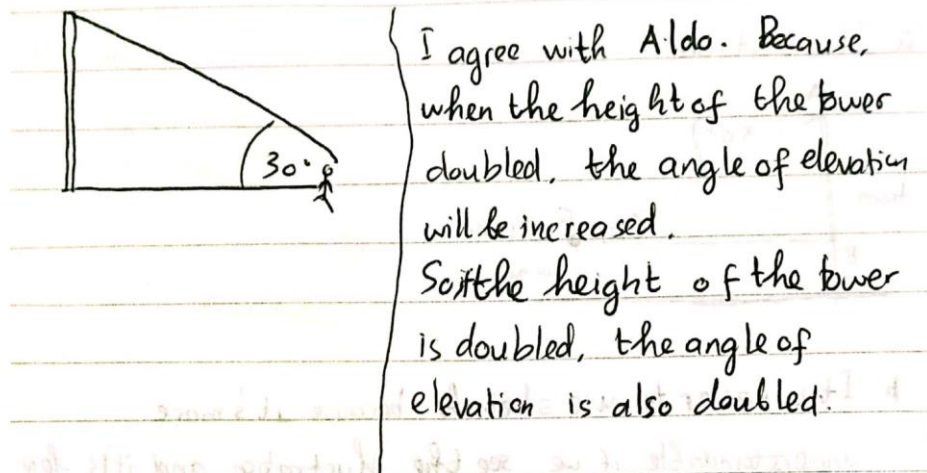 30°
I agree with Aldo. Because,
when the height of the tower
doubled, the angle of elevation
will be increased.
So if the height of the tower
is doubled, the angle of
elevation is also doubled.